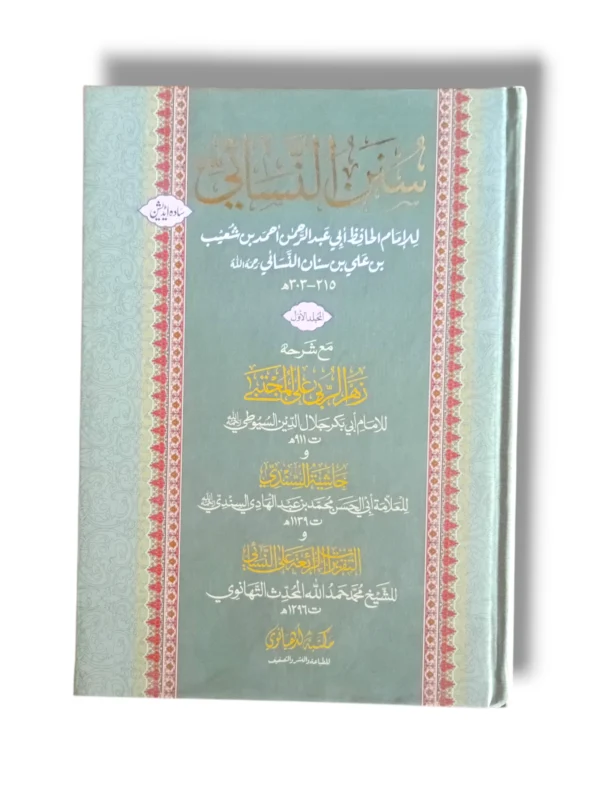 سُنَنُ النَّسَائي
سادہ ایڈیشن
لِلإمَام الحَافِظ أبي عَبدالرَّحمٰن أحمَد بن شعَيب
بن عَلي بن سنان النَّسَائي رحمه الله
٢١٥-٣٠٣ھ
المجلد الأوّل
مَع شَرحه
زَهرُ الرُّبى عَلى المُجتَبى
للإمَام أبي بَكر جَلال الدِّين السّيُوطي
ت ٩١١ھ
و
حَاشِيَة السِّندي
للعَلّامَة أبي الحَسَن محمَّد بن عَبد الهَادي السِندي
ت ١١٣٩ھ
و
التقريرات الرائعة على النسائي
للشَّيخ محمَّد حَمدُ الله المُحَدِّث التَّهَانَوي
ت ١٢٩٦ھ
مکتبہ لدھیانوی
للطباعة والنشر والتصنيف